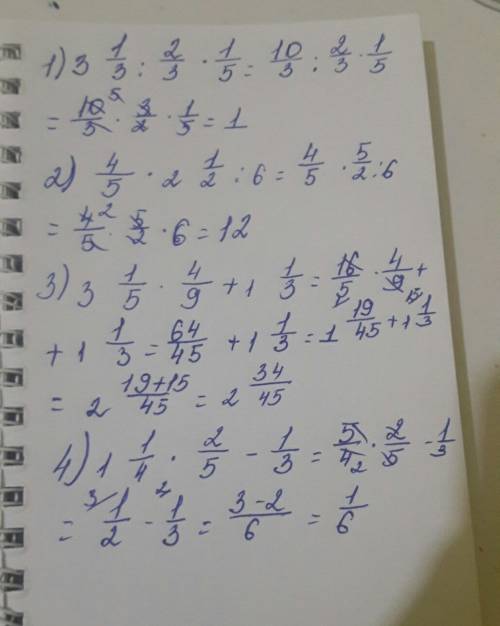 1) 3 1/3 : 2/3 · 1/5 = 10/3 : 2/3 · 1/5
= 10/3 5 · 3/2 · 1/5 = 1
2) 4/5 · 2 1/2 : 6 = 4/5 · 5/2 : 6
= 4/5 2 · 5/2 · 6 = 12
3) 3 1/5 · 4/9 + 1 1/3 = 16/5 · 4/9 +
+ 1 1/3 = 64/45 + 1 1/3 = 1 19/45 + 1 15 1/3
= 2 19+15/45 = 2 34/45
4) 1 1/4 · 2/5 - 1/3 = 5/4 2 · 2/5 - 1/3
= 3 1/2 - 2 1/3 = 3-2/6 = 1/6